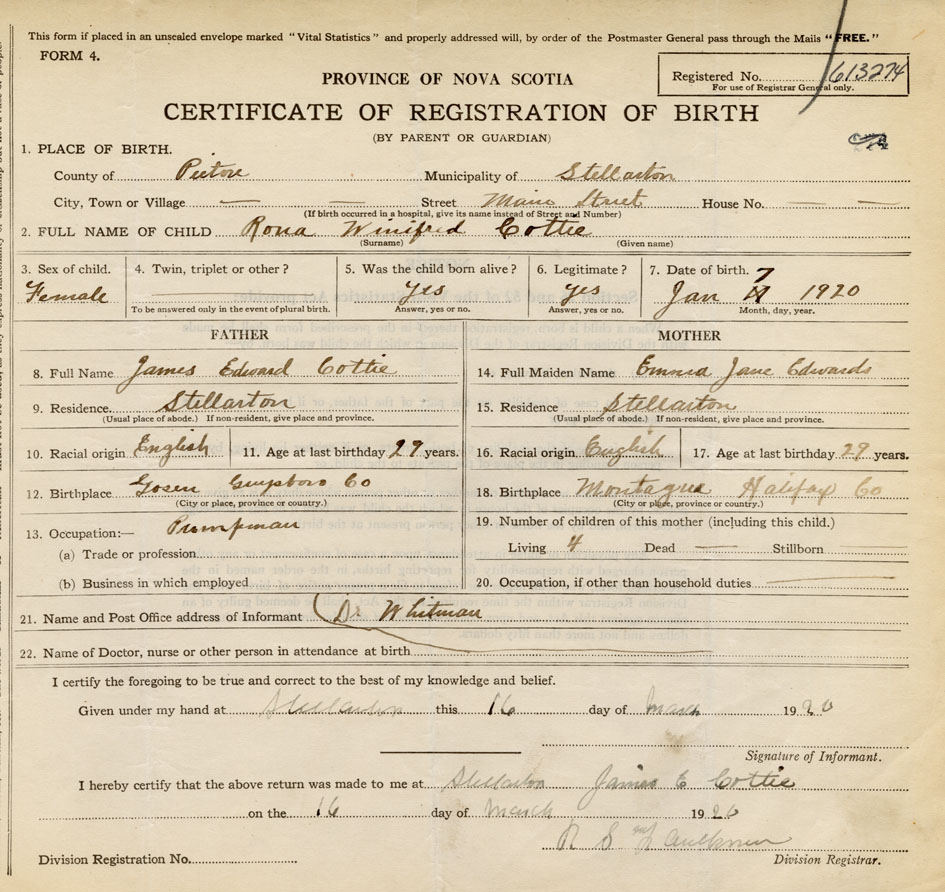 This form if placed in an unsealed envelope marked "Vital Statistics" and properly addressed will, by order of the Postmaster General pass through the Mails "FREE."
FORM 4.
PROVINCE OF NOVA SCOTIA
Registered No. 613274
For use of Registrar General only.
CERTIFICATE OF REGISTRATION OF BIRTH
(BY PARENT OR GUARDIAN)
1. PLACE OF BIRTH.
County of Pictou Municipality of Stellarton
City, Town or Village — — Street Main Street House No. — —
(If birth occurred in a hospital, give its name instead of Street and Number)
2. FULL NAME OF CHILD Rona Winifred Cottie
(Surname) (Given name)
3. Sex of child. 4. Twin, triplet or other? 5. Was the child born alive? 6. Legitimate? 7. Date of birth. 7
Female yes yes Jan 1920
To be answered only in the event of plural birth. Answer, yes or no. Answer, yes or no. Month, day, year.
FATHER
8. Full Name James Edward Cottie
9. Residence Stellarton
(Usual place of abode.) If non-resident, give place and province.
10. Racial origin English 11. Age at last birthday 29 years.
12. Birthplace Gosen Guysboro Co
(City or place, province or country.)
13. Occupation:— Pumpman
(a) Trade or profession
(b) Business in which employed
MOTHER
14. Full Maiden Name Emma Jane Edwards
15. Residence Stellarton
(Usual place of abode.) If non-resident, give place and province.
16. Racial origin English 17. Age at last birthday 29 years.
18. Birthplace Montague Halifax Co
(City or place, province or country.)
19. Number of children of this mother (including this child.)
Living 4 Dead — Stillborn —
20. Occupation, if other than household duties.
21. Name and Post Office address of Informant Dr Whitman
22. Name of Doctor, nurse or other person in attendance at birth
I certify the foregoing to be true and correct to the best of my knowledge and belief.
Given under my hand at Stellarton this 16 day of March 1920
Signature of Informant.
I hereby certify that the above return was made to me at Stellarton James E Cottie
on the 16 day of March 1920
Division Registration No. Division Registrar.